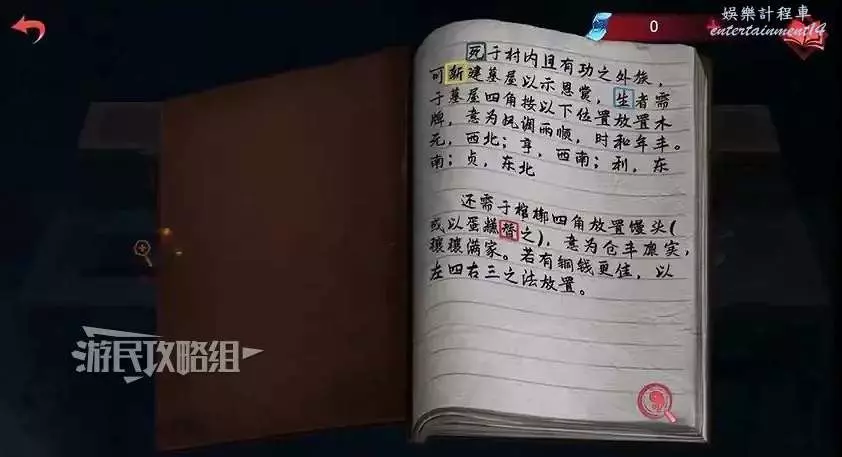 0
娛樂計程車
entertainment14
死于村内且有功之外族，
可新建墓屋以示恩赏，生者需
于墓屋四角按以下位置放置木
牌，意为风调雨顺，时和年丰。
死，西北；亨，西南；利，东
南；贞，东北
还需于棺椁四角放置馒头(
或以蛋糕替之)，意为仓丰廪实，
穰穰满家。若有铜钱更佳，以
左四右三之法放置。
游民攻略组